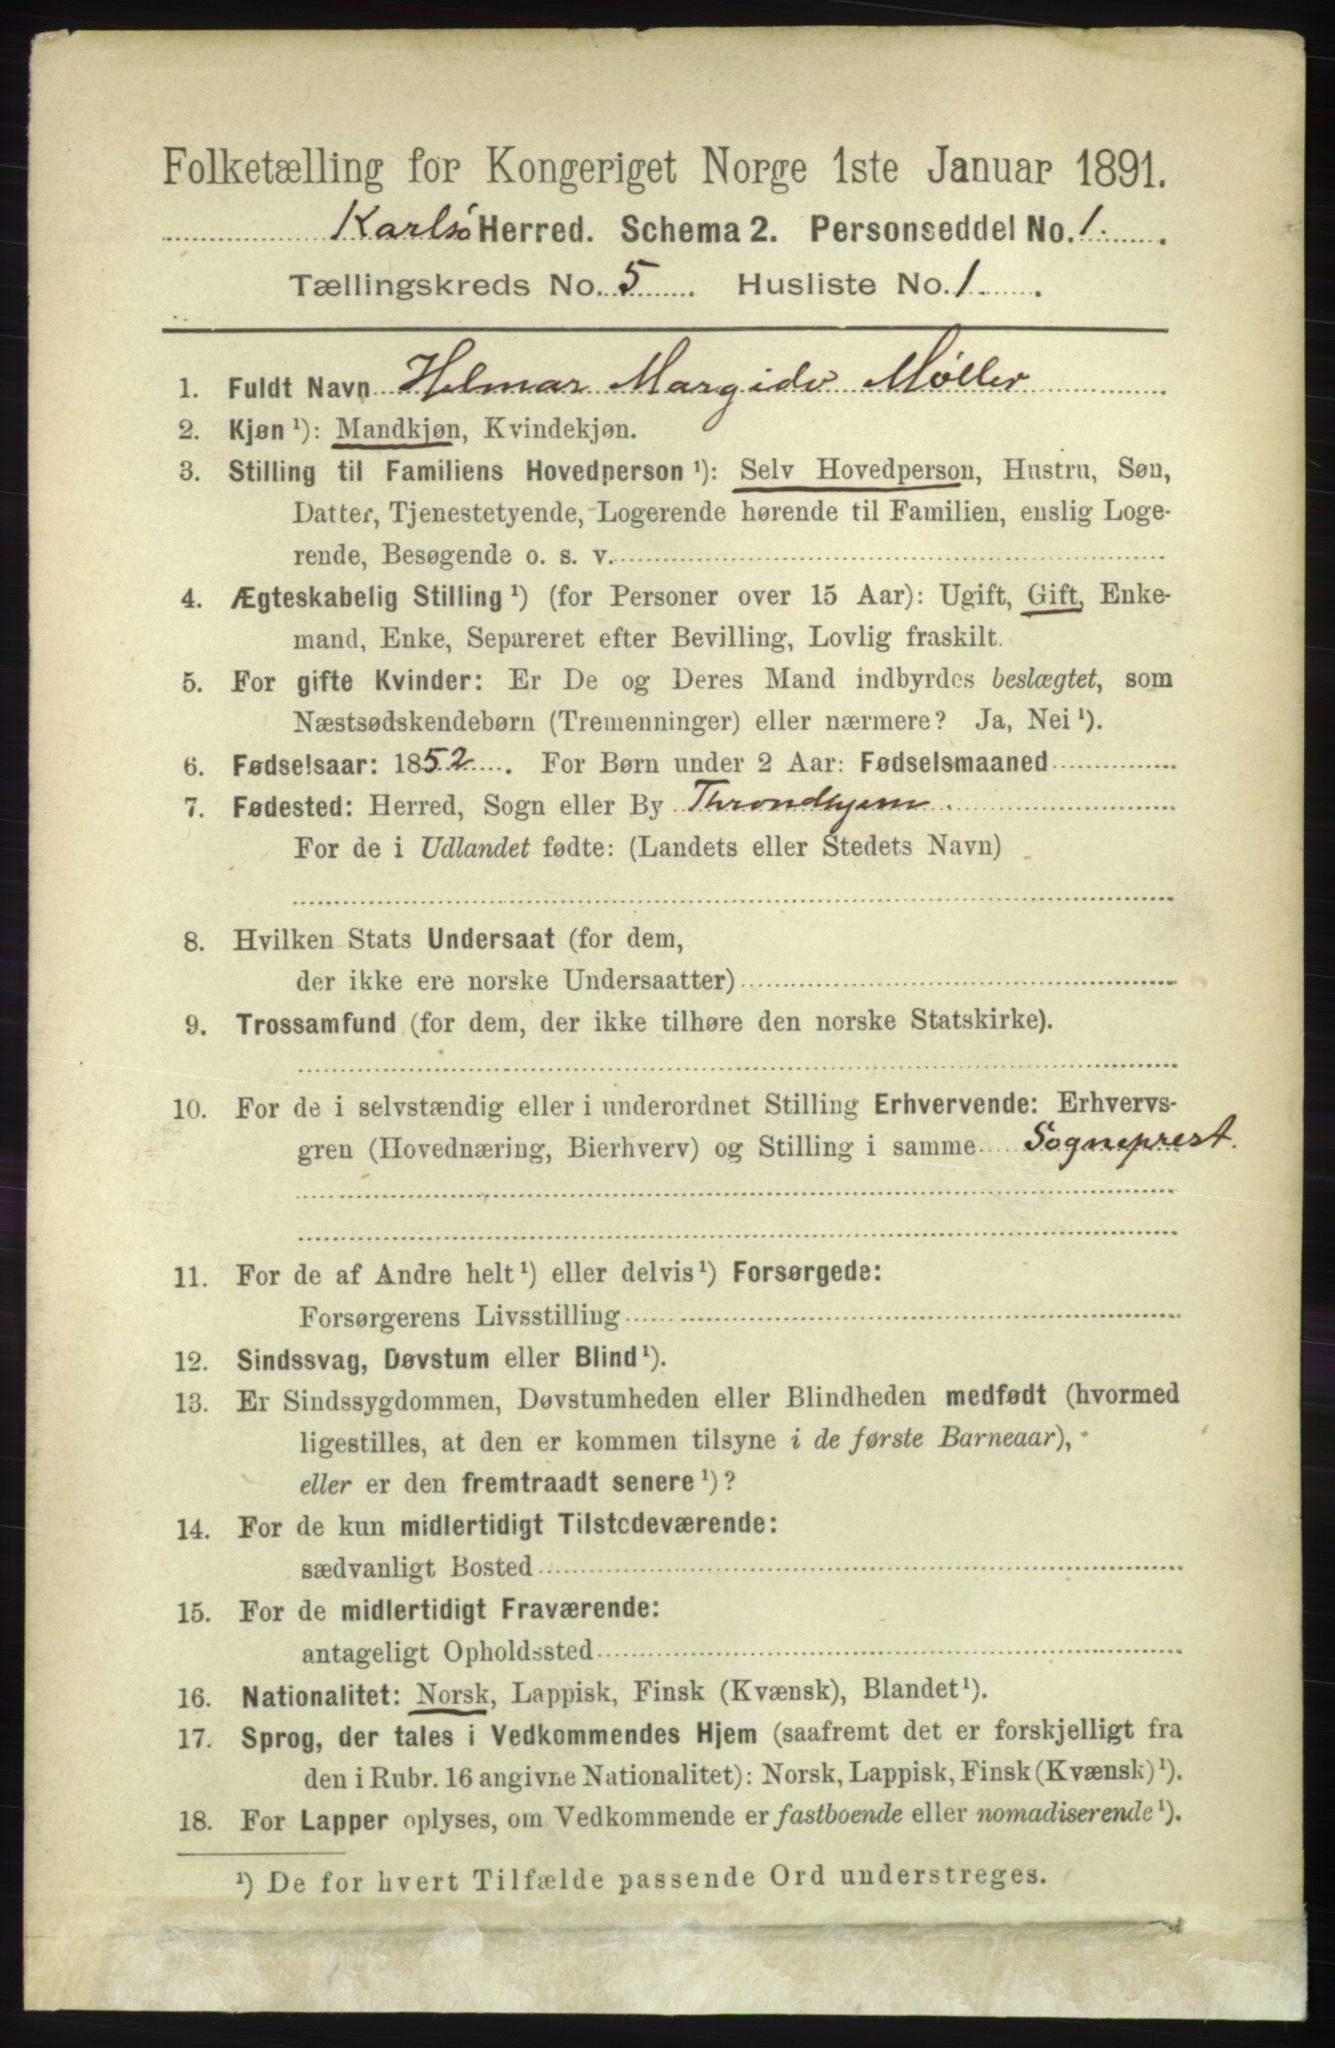 Folketælling for Kongeriget Norge 1ste Januar 1891.
Karlsø Herred. Schema 2. Personseddel No. 1.
Tællingskreds No. 5. Husliste No. 1.
1. Fuldt Navn Helmar Margido Møller
2. Kjøn ¹): Mandkjøn, Kvindekjøn.
3. Stilling til Familiens Hovedperson ¹): Selv Hovedperson, Hustru, Søn,
Datter, Tjenestetyende, Logerende hørende til Familien, enslig Loge-
rende, Besøgende o. s. v.
4. Ægteskabelig Stilling ¹) (for Personer over 15 Aar): Ugift, Gift, Enke-
mand, Enke, Separeret efter Bevilling, Lovlig fraskilt.
5. For gifte Kvinder: Er De og Deres Mand indbyrdes beslægtet, som
Næstsødskendebørn (Tremenninger) eller nærmere? Ja, Nei ¹).
6. Fødselsaar: 1852. For Børn under 2 Aar: Fødselsmaaned
7. Fødested: Herred, Sogn eller By Throndhjem.
For de i Udlandet fødte: (Landets eller Stedets Navn)
8. Hvilken Stats Undersaat (for dem,
der ikke ere norske Undersaatter)
9. Trossamfund (for dem, der ikke tilhøre den norske Statskirke).
10. For de i selvstændig eller i underordnet Stilling Erhvervende: Erhvervs-
gren (Hovednæring, Bierhverv) og Stilling i samme Sogneprest.
11. For de af Andre helt ¹) eller delvis ¹) Forsørgede:
Forsørgerens Livsstilling
12. Sindssvag, Døvstum eller Blind ¹).
13. Er Sindssygdommen, Døvstumheden eller Blindheden medfødt (hvormed
ligestilles, at den er kommen tilsyne i de første Barneaar),
eller er den fremtraadt senere ¹)?
14. For de kun midlertidigt Tilstedeværende:
sædvanligt Bosted
15. For de midlertidigt Fraværende:
antageligt Opholdssted
16. Nationalitet: Norsk, Lappisk, Finsk (Kvænsk), Blandet ¹).
17. Sprog, der tales i Vedkommendes Hjem (saafremt det er forskjelligt fra
den i Rubr. 16 angivne Nationalitet): Norsk, Lappisk, Finsk (Kvænsk) ¹).
18. For Lapper oplyses, om Vedkommende er fastboende eller nomadiserende ¹).
¹) De for hvert Tilfælde passende Ord understreges.